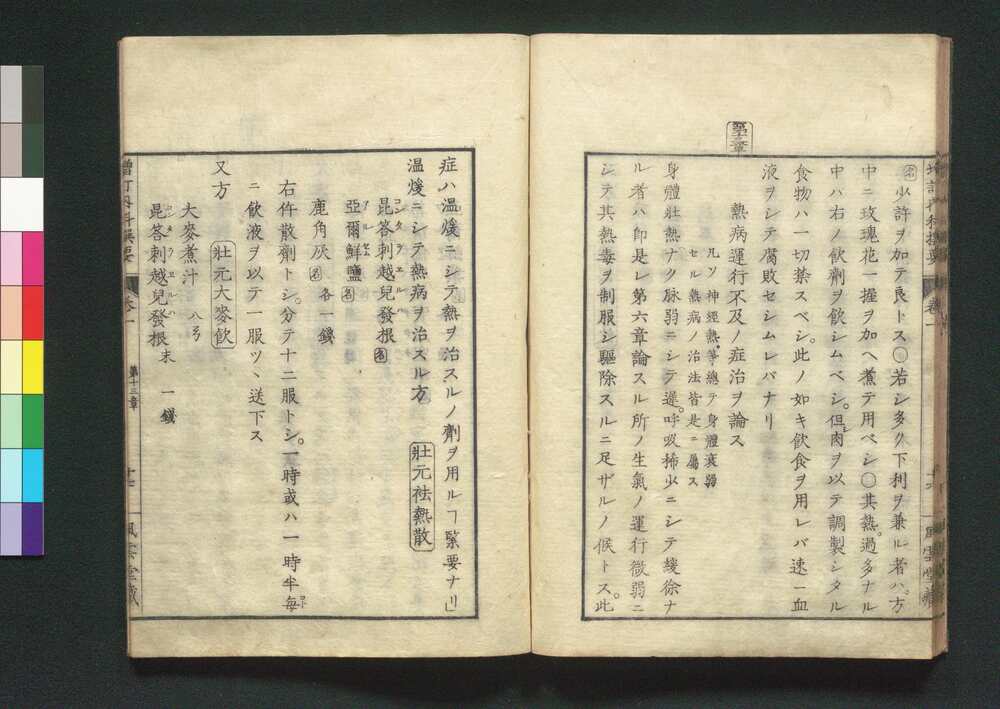 第十三章
少許ヲ加テ良トス〇若シ多ク下利ヲ兼ル者ハ方
中ニ玫瑰花一握ヲ加ヘ煮テ用ベシ〇其熱過多ナル
中ハ右ノ飲劑ヲ飲シムベシ但肉ヲ以テ調製シタル
食物ハ一切禁スベシ此ノ如キ飲食ヲ用レバ速ニ血
液ヲシテ腐敗セシムレバナリ
熱病運行不及ノ症治ヲ論ス
凡ソ神經熱等總テ身體衰弱
セル熱病ノ治法皆是ニ屬ス
身體壯熱ナク脉弱ニシテ遲呼吸稀少ニシテ緩徐ナ
ル者ハ即是レ第六章論スル所ノ生氣ノ運行微弱ニ
シテ其熱毒ヲ制服シ驅除スルニ足ザルノ候トス此
症ハ温煖ニシテ熱ヲ治スルノ劑ヲ用ルヿ緊要ナリ
温煖ニシテ熱病ヲ治スル方 壯元祛熱散
昆答刺越兒發根
亞爾鮮鹽
鹿角灰 各一錢
右件散劑トシ分テ十二服トシ一時或ハ一時半毎
ニ飲液ヲ以テ一服ツヽ送下ス
又方 壯元大麥飲
大麥煮汁 八弓
昆答刺越兒發根末 一錢
増訂内科撰要 卷一 第十三章 風雲堂藏